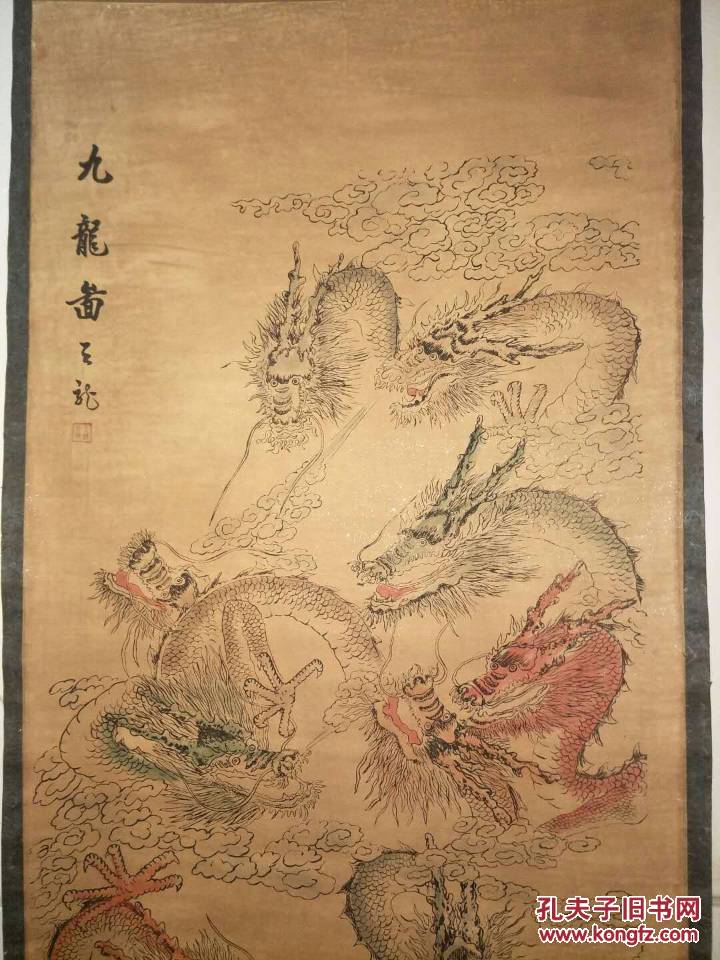 九龍啚
云龍
孔夫子旧书网
www.kongfz.com